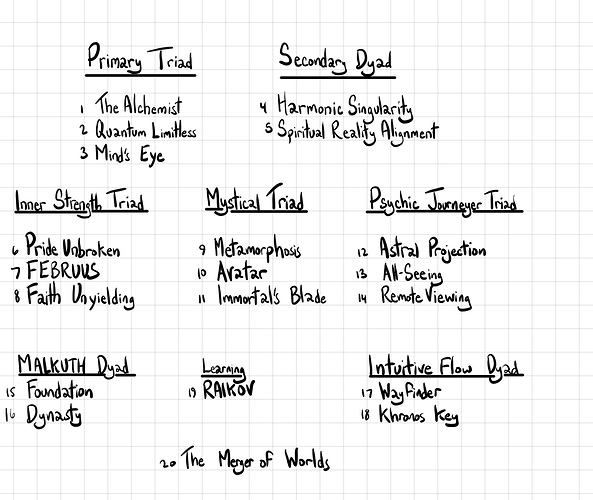 Primary Triad
1 The Alchemist
2 Quantum Limitless
3 Mind's Eye
Secondary Dyad
4 Harmonic Singularity
5 Spiritual Reality Alignment
Inner Strength Triad
6 Pride Unbroken
7 FEBRUUS
8 Faith Unyielding
Mystical Triad
9 Metamorphosis
10 Avatar
11 Immortal's Blade
Psychic Journeyer Triad
12 Astral Projection
13 All-Seeing
14 Remote Viewing
MALKUTH Dyad
15 Foundation
16 Dynasty
Learning
19 RAIKOV
Intuitive Flow Dyad
17 Wayfinder
18 Khronos Key
20 The Merger of Worlds